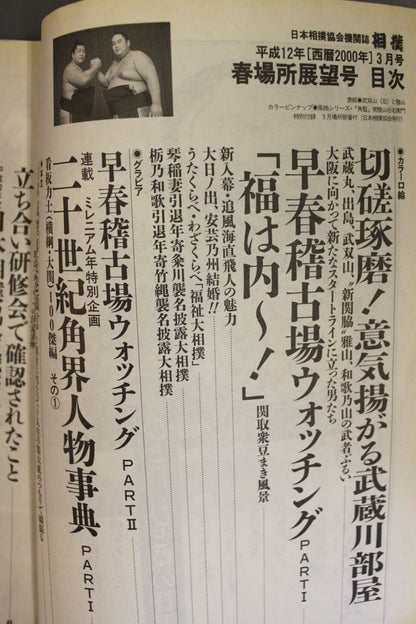 日本相撲協会機関誌 相撲
平成12年[西暦2000年]3月号
春場所展望号 目次
表紙●武双山(左)と雅山
カラーピンナップ●風格シリーズ・「角聖」常陸山谷右衛門
特別付録 3月場所新番付(日本相撲協会発行)
●カラー口絵
切磋琢磨!意気揚がる武蔵川部屋
武蔵丸、出島、武双山、“新関脇”雅山、和歌乃山の武者ぶるい
大阪に向かって新たなスタートラインに立った男たち
早春稽古場ウォッチング PARTⅠ
「福は内〜!」 関取衆豆まき風景
新入幕・追風海直飛人の魅力
大日ノ出、安芸乃州結婚!!
うたくらべ・わざくらべ「福祉大相撲」
琴稲妻引退年寄粂川襲名披露大相撲
栃乃和歌引退年寄竹縄襲名披露大相撲
●グラビア
早春稽古場ウォッチング PARTⅡ
連載 ミレニアム年特別企画
二十世紀角界人物事典 PARTⅠ
看板力士(横綱・大関)100傑編 その①
立ち合い研修会で確認されたこと